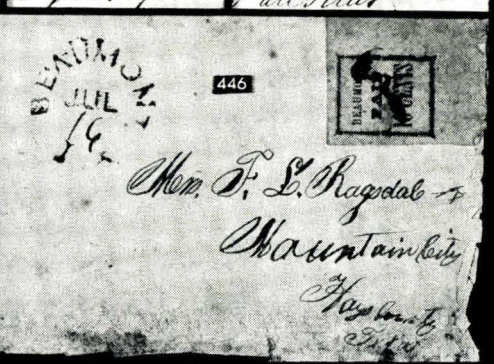 BEAUMONT
JUL
16
446
BEAUMONT
PAID
10 CENTS
Mrs. F. L. Ragsdale
Mountain City
Hays County
Texas